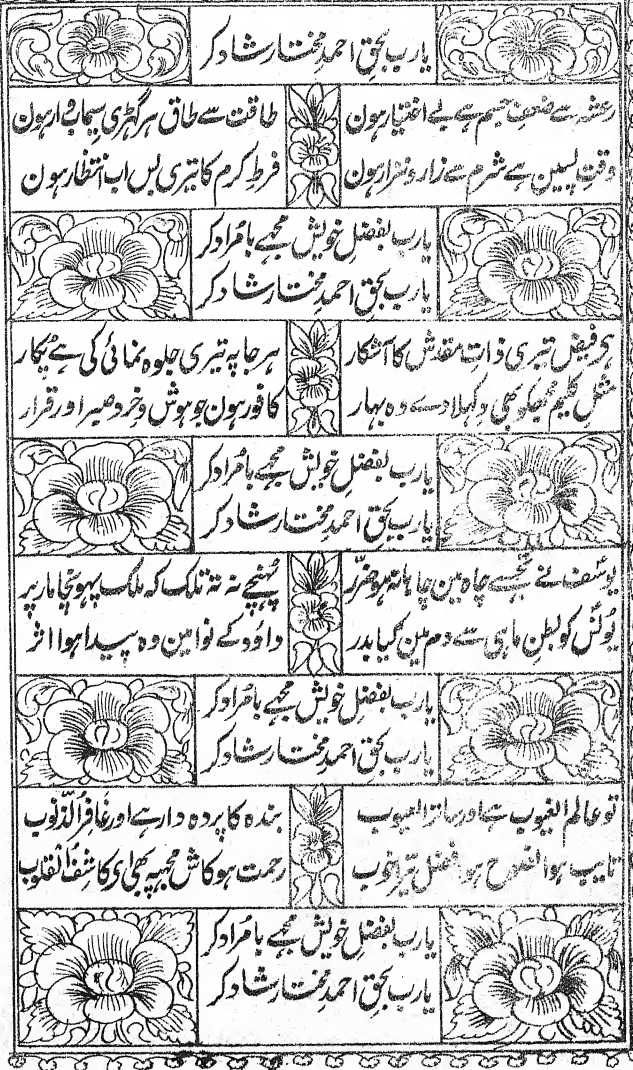 یارب بحق احمدِ مختار شاد کر
رعشہ سے ضعفِ جسم ہے بے اختیار ہون
طاقت سے طاق ہر گھڑی سیماب وار ہون
وقتِ پسین ہے شرم سے زار و نزار ہون
فرطِ کرم کا تیری بس اب انتظار ہون
یارب بفضلِ خویش مجھے بامُراد کر
یارب بحق احمدِ مختار شاد کر
ہی فیض تیری ذاتِ مقدّس کا آشکار
ہر جا پہ تیری جلوہ نمائی کی ہے پکار
مثلِ کلیم مجھکو بھی دکھلا دے وہ بہار
کافور ہون جو ہوش و خرد صبر اور قرار
یارب بفضلِ خویش مجھے بامُراد کر
یارب بحق احمدِ مختار شاد کر
یوسُف نے تجھے چاہ مین چاہا نہ ہو ضرر
پُہنچے نہ تہ تلک کہ ملک پہونچا مار پر
یُونس کو بطنِ ماہی سے دم مین کیا بدر
داؤد کے نوا مین وہ پیدا ہوا اثر
یارب بفضلِ خویش مجھے بامُراد کر
یارب بحق احمدِ مختار شاد کر
تو عالم الغیوب ہے اور ساتر العیوب
بندہ کا پردہ دار ہے اور غافر الذّنوب
تایب ہوا نصوح ہو فضل تیرا خوب
رحمت ہو کاش مجھپہ بھی ای کاشف القلوب
یارب بفضلِ خویش مجھے بامُراد کر
یارب بحق احمدِ مختار شاد کر